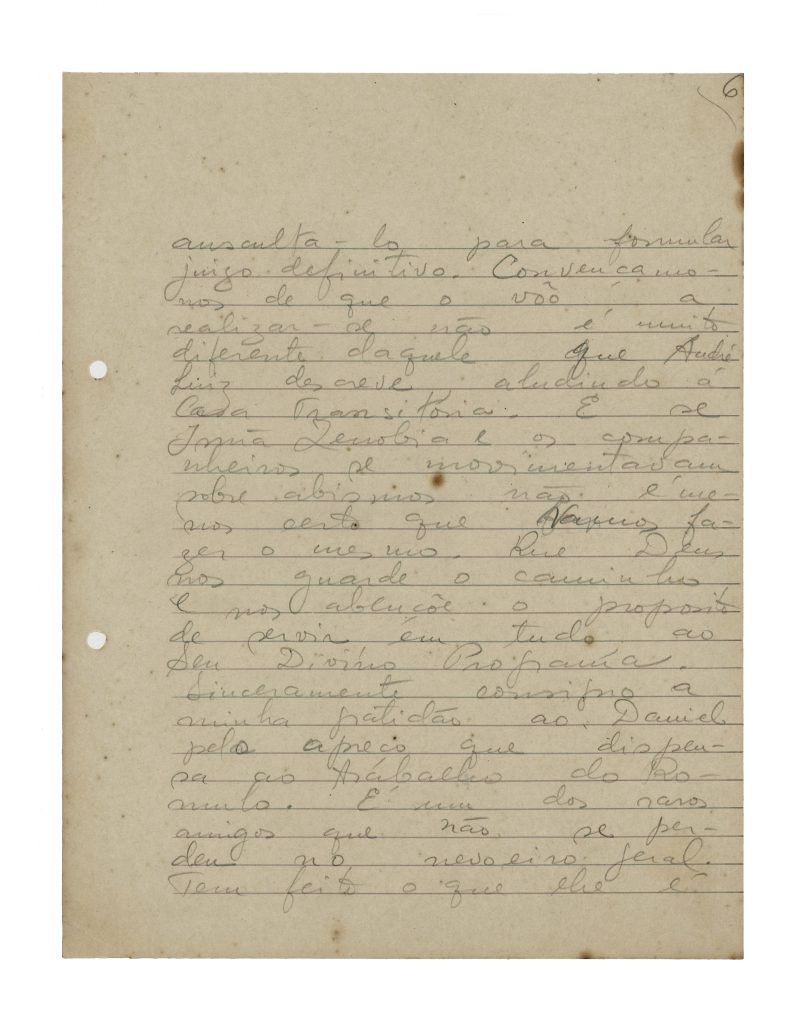 6
auscultá-lo para formular
juizo definitivo. Convençamo-
nos de que o vôo a
realizar-se não é muito
diferente daquele que André
Luiz descreve, aludindo á
Casa Transitória. E se
Irmã Zenobia e os compa-
nheiros se movimentavam
sobre abismos não é me-
nos certo que vamos fa-
zer o mesmo. Que Deus
nos guarde o caminho
e nos abençõe o proposito
de servir em tudo ao
Seu Divino Programa.
Sinceramente consigno a
minha gratidão ao Daniel
pelo apreço que dispen-
sa ao trabalho do Ro-
mulo. É um dos raros
amigos que não se per-
deu no nevoeiro geral.
Tem feito o que lhe é